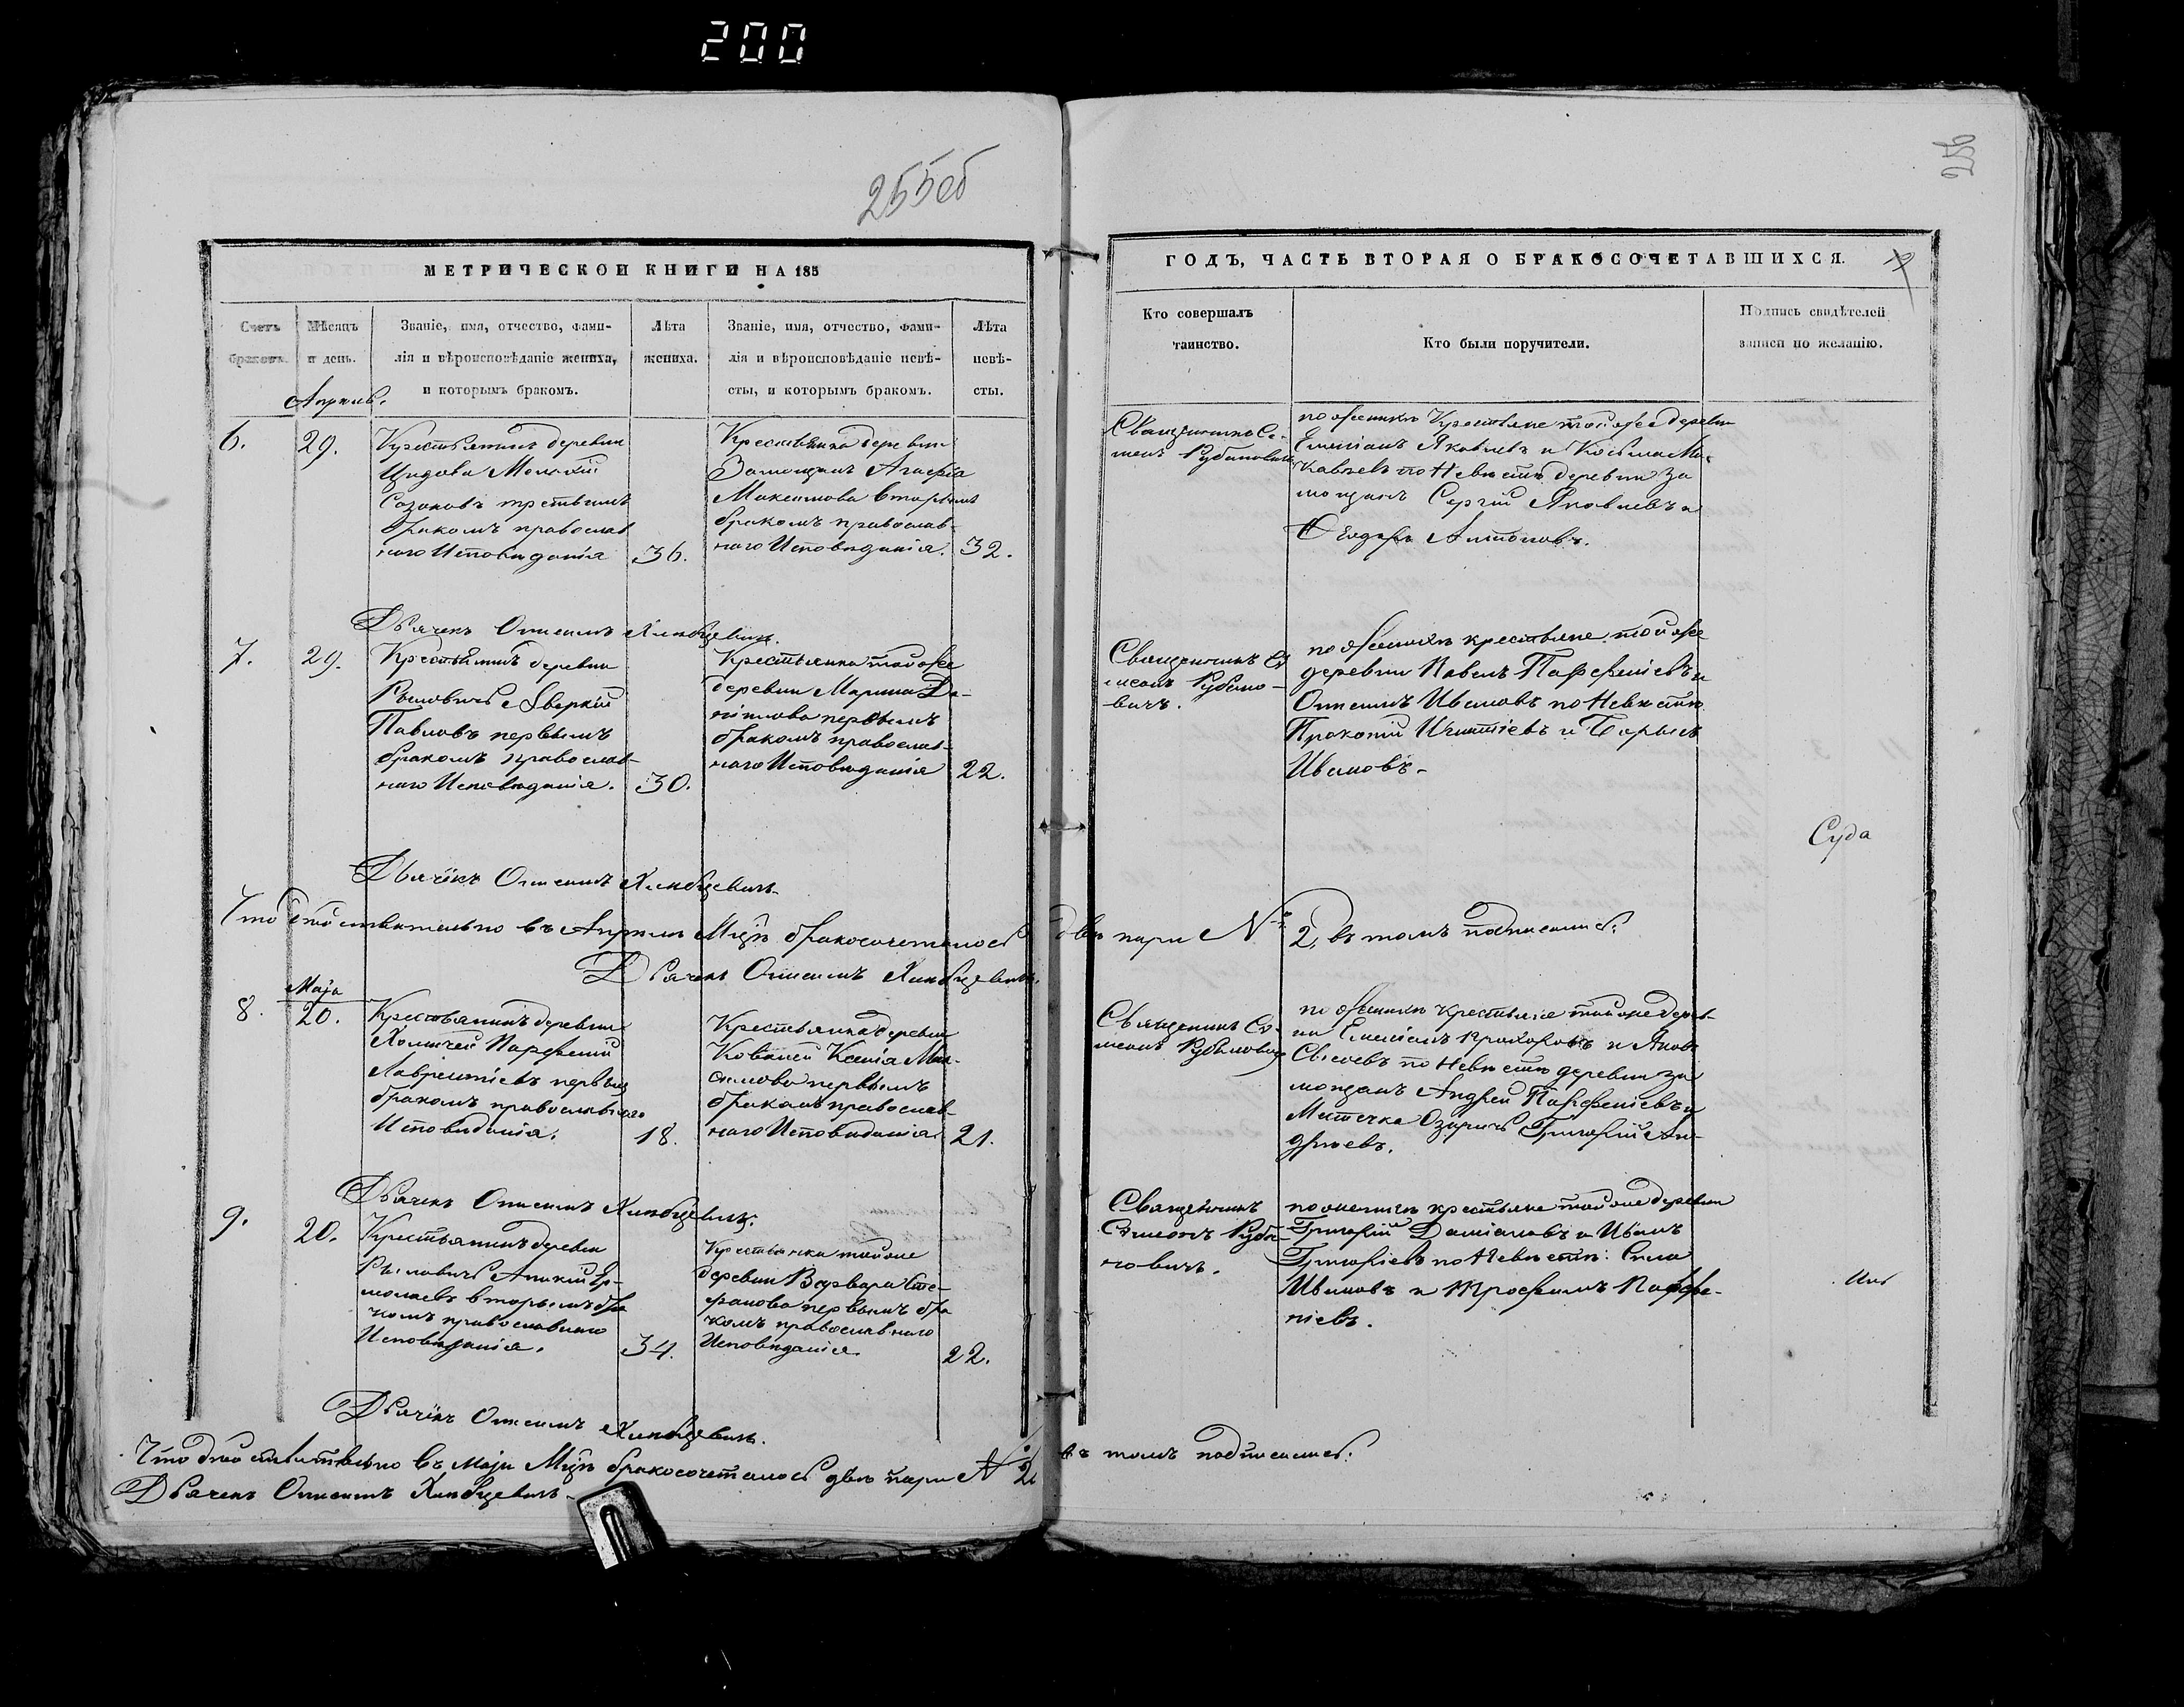 200
255об
256
МЕТРИЧЕСКОЙ КНИГИ НА 185
ГОДЪ, ЧАСТЬ ВТОРАЯ О БРАКОСОЧЕТАВШИХСЯ.
Счетъ
браковъ.
Мѣсяцъ
и день.
Званіе, имя, отчество, фами-
лія и вѣроисповѣданіе жениха,
и которымъ бракомъ.
Лѣта
жениха.
Званіе, имя, отчество, фами-
лія и вѣроисповѣданіе невѣ-
сты, и которымъ бракомъ.
Лѣта
невѣ-
сты.
Кто совершалъ
таинство.
Кто были поручители.
Подпись свидѣтелей
записи по желанію.
Апрель.
6.
29.
Крестьянинъ деревни
Созоновъ третьимъ
бракомъ православ
наго Исповѣданія
36.
Крестьянка деревни
Замощанъ Агафія
Максимова вторымъ
бракомъ православ-
наго Исповѣданія.
32.
Священникъ Си-
меонъ Рубановичъ
по женихѣ Крестьяне той же деревни
Емеліанъ Яковлевъ и Козьма Ма-
по Невѣстѣ деревни За
мощанъ Сергій Яковлевъ и
Ѳеодоръ Антоновъ.
Дьячекъ Онисимъ
7.
29.
Крестьянинъ деревни
Рымовичъ Аверкій
Павловъ первымъ
бракомъ православ-
наго Исповѣданія.
30.
Крестьянка той же
деревни Марина Да-
нілова первымъ
бракомъ православ-
наго Исповѣданія
22.
Священникъ Си
меонъ Рубано-
вичъ.
по женихѣ крестьяне той же
деревни Павелъ Парфеніевъ и
Онисимъ Ивановъ по Невѣстѣ
Прокопій Игнатіевъ и Борысъ
Ивановъ.
Суда
Дьячекъ Онисимъ
Что дѣйствительно въ Апрелѣ Мцѣ бракосочеталось двѣ пары № 2, въ томъ подписался:
Дьячекъ Онисимъ
Маја
8.
20.
Крестьянинъ деревни
Холмечи Парфеній
Лаврентіевъ первымъ
бракомъ православнаго
Исповѣданія.
18.
Крестьянка деревни
Ксенія Мак-
симова первымъ
бракомъ православ-
наго Исповѣданія
21.
Священникъ Си-
меонъ Рубановичъ
по женихѣ крестьяне той же дерев-
ни Емеліанъ Прохоровъ и Яковъ
Сысоевъ по Невѣстѣ деревни За
мощанъ Андрей Парфеніевъ и
Мѣстечка Озаричъ Григорій Ан-
дреевъ.
Дьячекъ Онисимъ
9.
20.
Крестьянинъ деревни
Рымовичъ Аникій Ер-
молаевъ вторымъ бра
комъ православнаго
Исповѣданія.
34.
Крестьянка той же
деревни Варвара Сте-
фанова первымъ бра
комъ православнаго
Исповѣданія
22.
Священникъ
Симеонъ Руба-
новичъ.
по женихѣ крестьяне той же деревни
Григорій Даміановъ и Иванъ
Григоріевъ по Невѣстѣ: Сила
Ивановъ и Трофимъ Парфе-
ніевъ.
Дьячекъ Онисимъ
Что дѣйствительно въ Маји Мцѣ бракосочеталось двѣ пары № 2 въ томъ подписался:
Дьячекъ Онисимъ